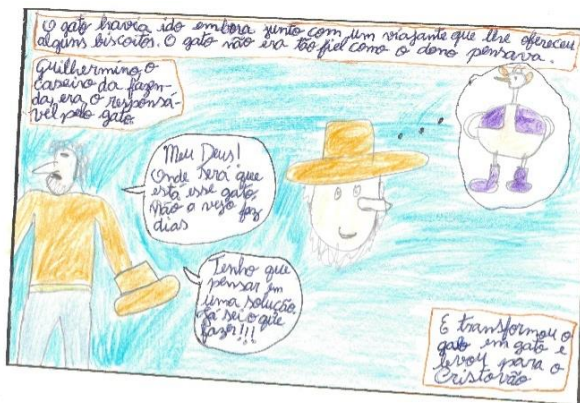 O gato havia ido embora junto com um viajante que lhe ofereceu
alguns biscoitos. O gato não era tão fiel como o dono pensava.
Guilhermino o
caseiro da fazen-
da, era o responsá-
vel pelo gato
Meu Deus!
Onde será que
está esse gato,
Não o vejo faz
dias
Tenho que
pensar em
uma solução
Já sei o que
fazer!!!
E transformou o
galo em gato e
levou para o
Cristovão